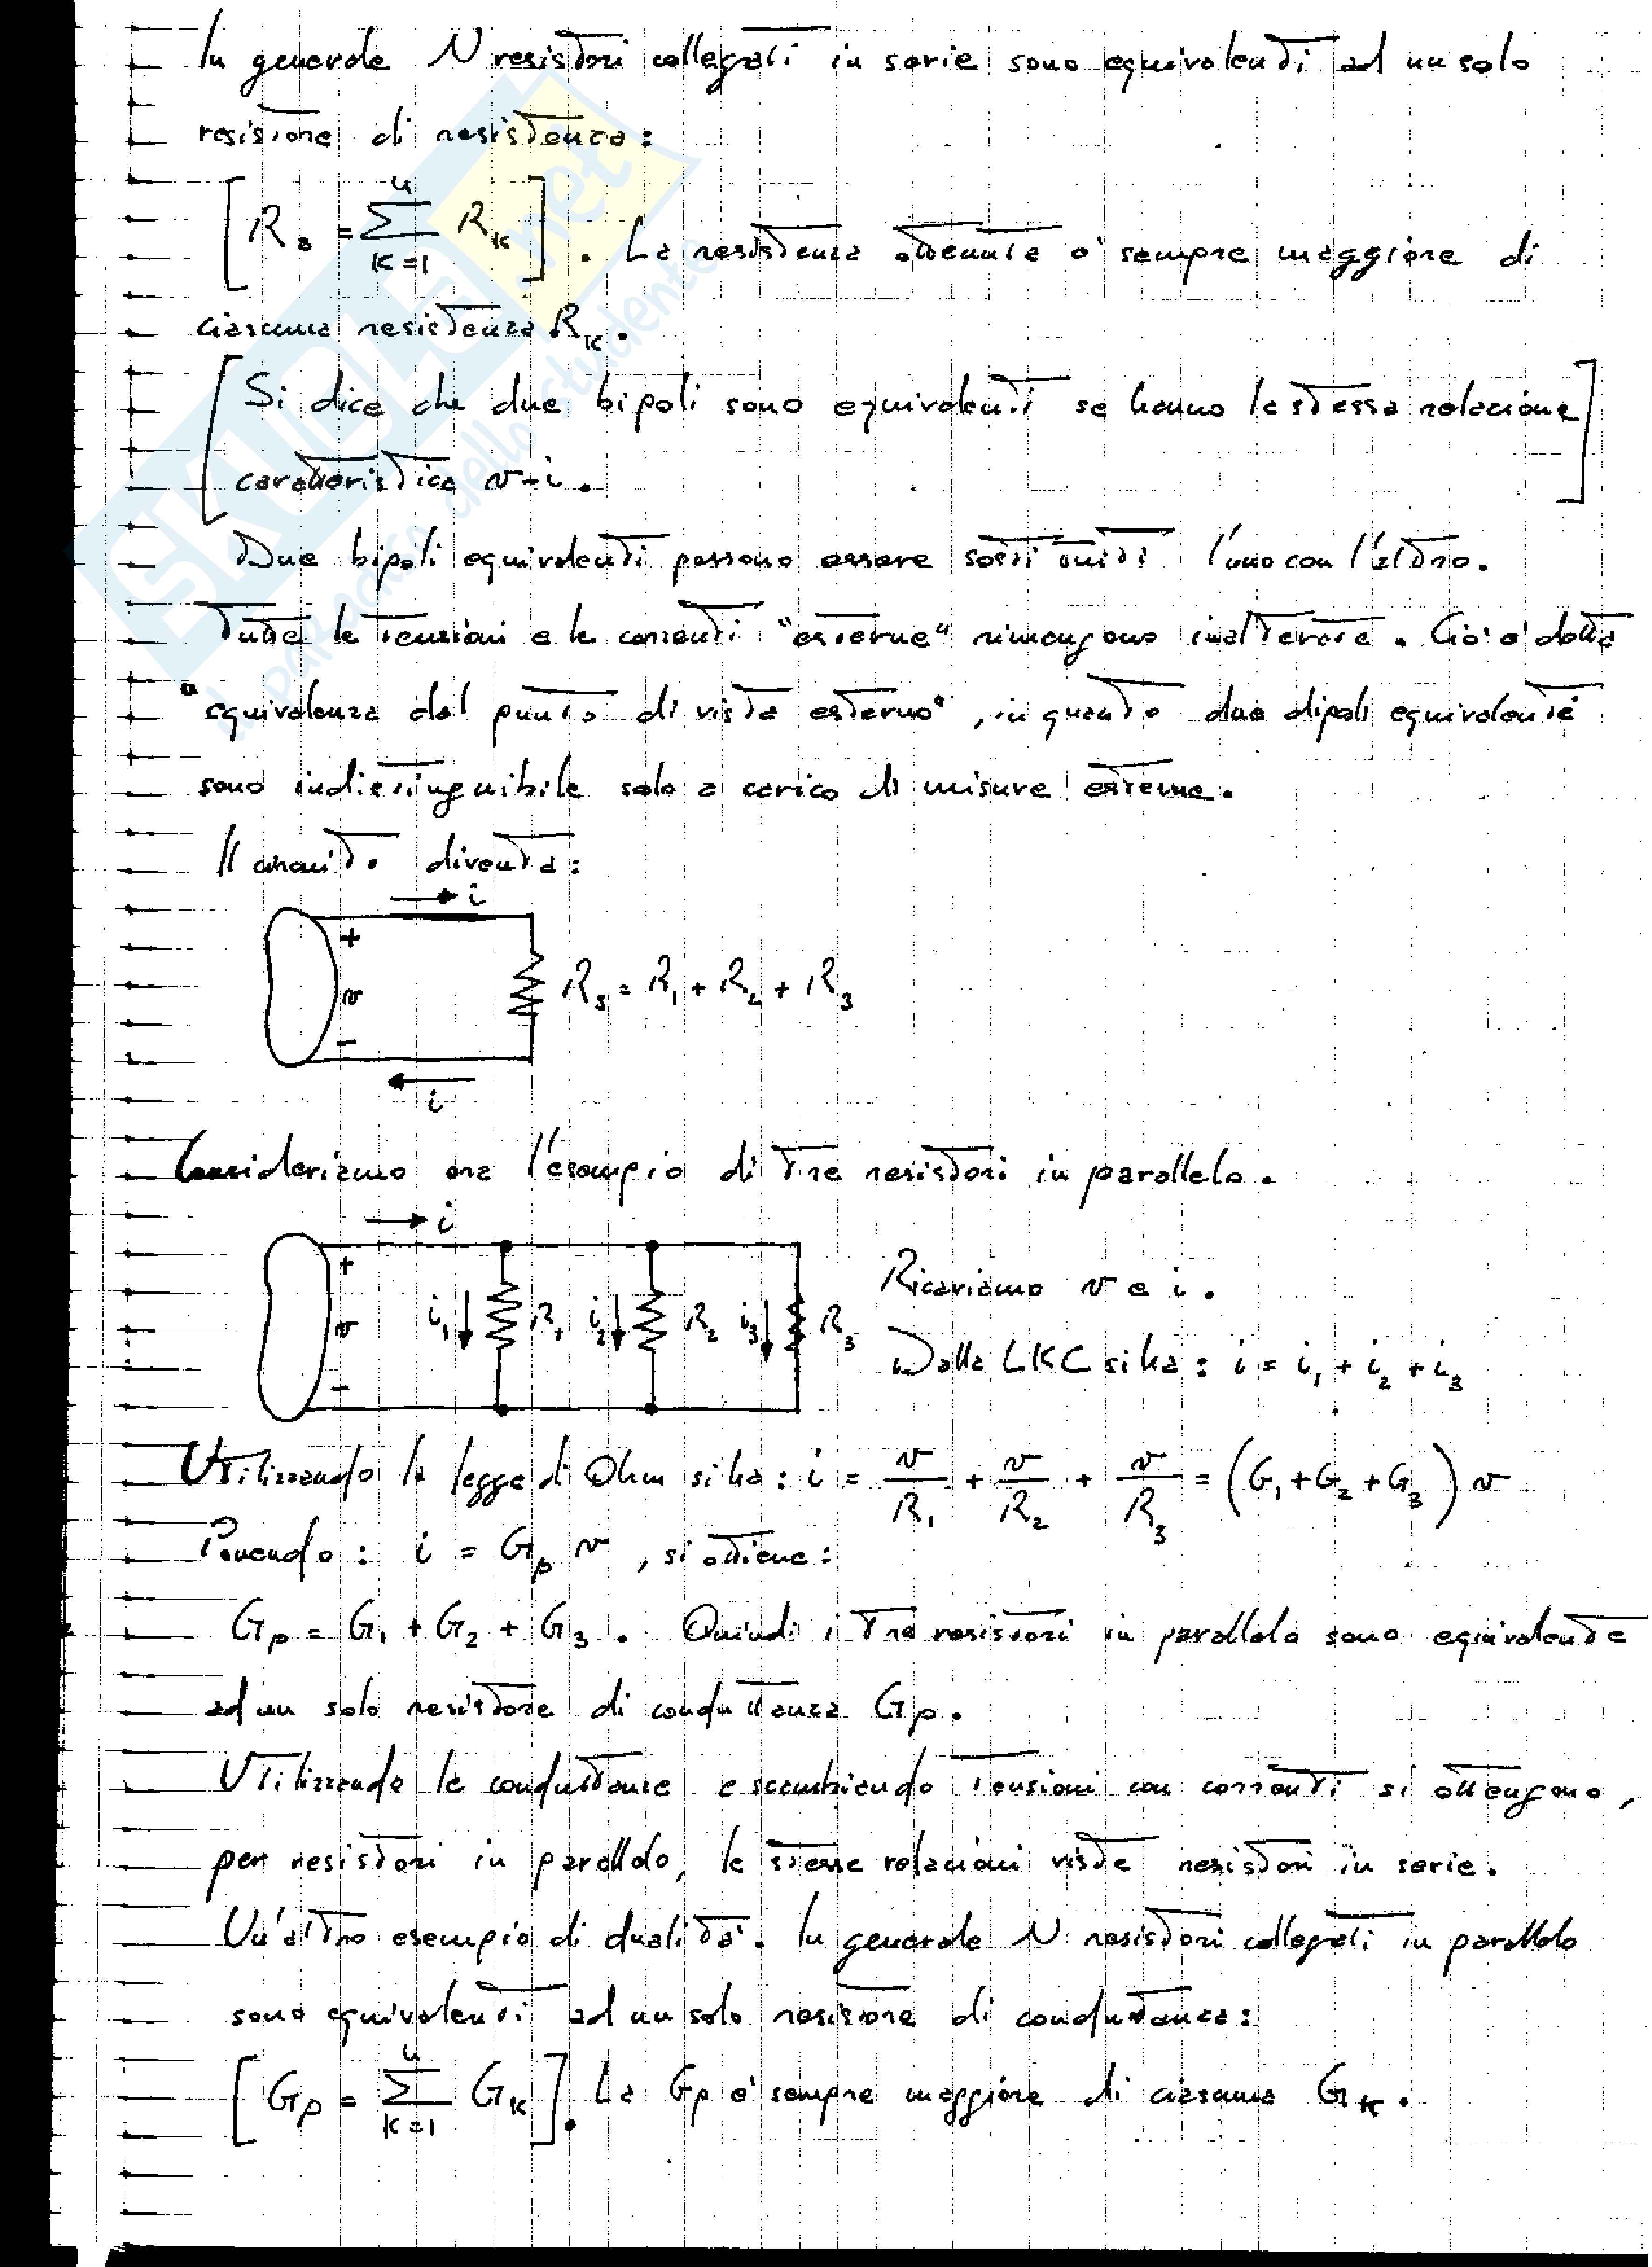 In generale N resistori collegati in serie sono equivalenti ad un solo
resistore di resistenza:
[R_s = Σ_{k=1}^{n} R_k]. La resistenza ottenuta è sempre maggiore di
ciascuna resistenza R_k.
[Si dice che due bipoli sono equivalenti se hanno la stessa relazione
caratteristica v-i.]
Due bipoli equivalenti possono essere sostituiti l'uno con l'altro.
Tutte le tensioni e le correnti "esterne" rimangono inalterate. Ciò è detta
"equivalenza dal punto di vista esterno", in quanto due dipoli equivalenti
sono indistinguibile solo a carico di misure esterne.
Il circuito diventa:
i
+
v
-
R_s = R_1 + R_2 + R_3
i
Consideriamo ora l'esempio di tre resistori in parallelo.
i
+
v
-
i_1 R_1 i_2 R_2 i_3 R_3
Ricaviamo v e i.
Dalla LKC si ha: i = i_1 + i_2 + i_3
Utilizzando la legge di Ohm si ha: i = v/R_1 + v/R_2 + v/R_3 = (G_1 + G_2 + G_3) v
Ponendo: i = G_p v, si ottiene:
G_p = G_1 + G_2 + G_3. Quindi i tre resistori in parallelo sono equivalente
ad un solo resistore di conduttanza G_p.
Utilizzando le conduttanze e scambiando tensioni con correnti si ottengono,
per resistori in parallelo, le stesse relazioni viste resistori in serie.
Un'altro esempio di dualità. In generale N resistori collegati in parallelo
sono equivalenti ad un solo resistore di conduttanza:
[G_p = Σ_{k=1}^{n} G_k]. La G_p è sempre maggiore di ciascuna G_k.
SKUOLA.net
il paradiso dello studente